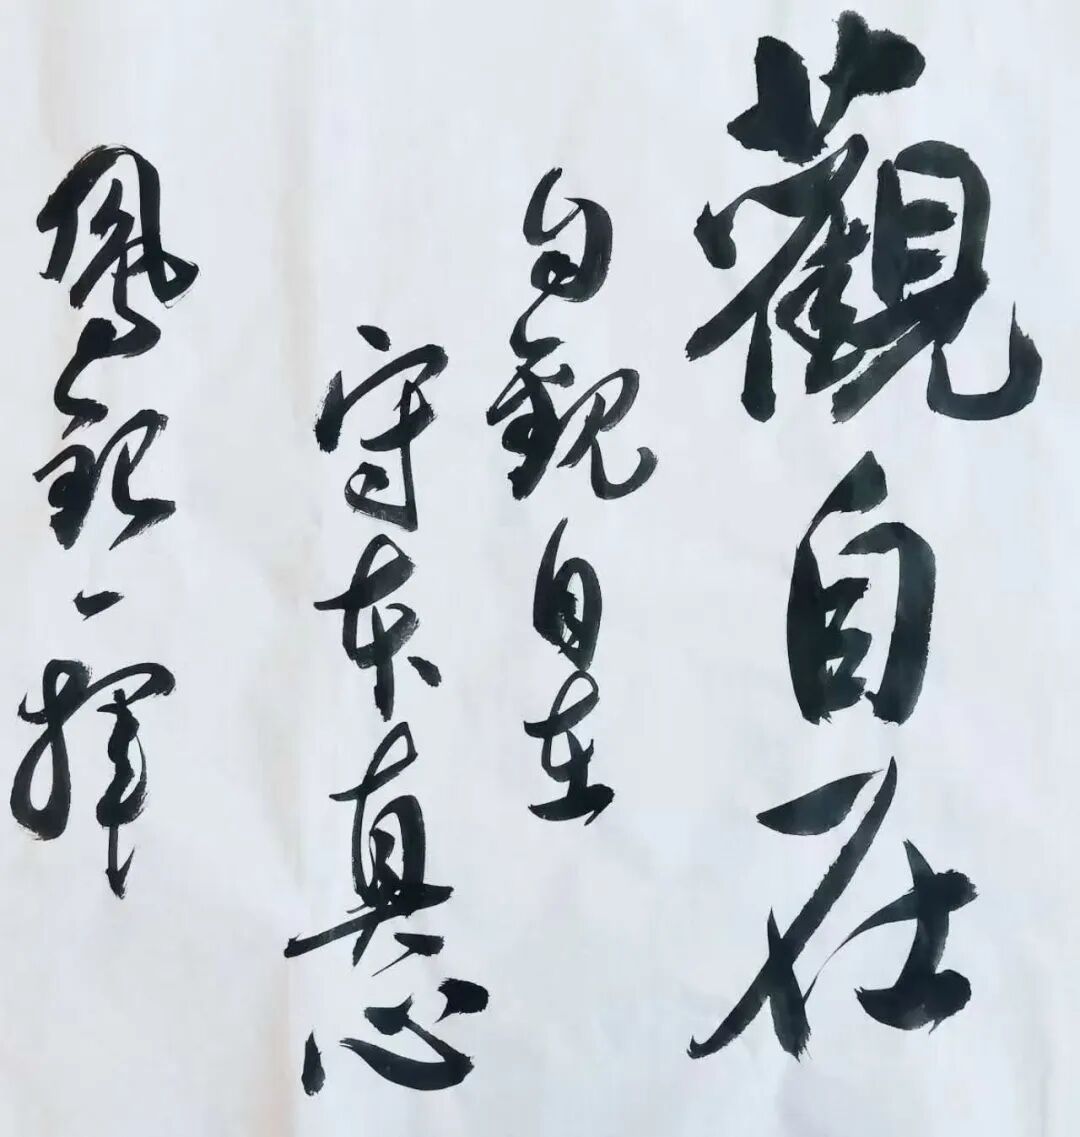 觀自在
自觀自在
守本真心
鳳一揮